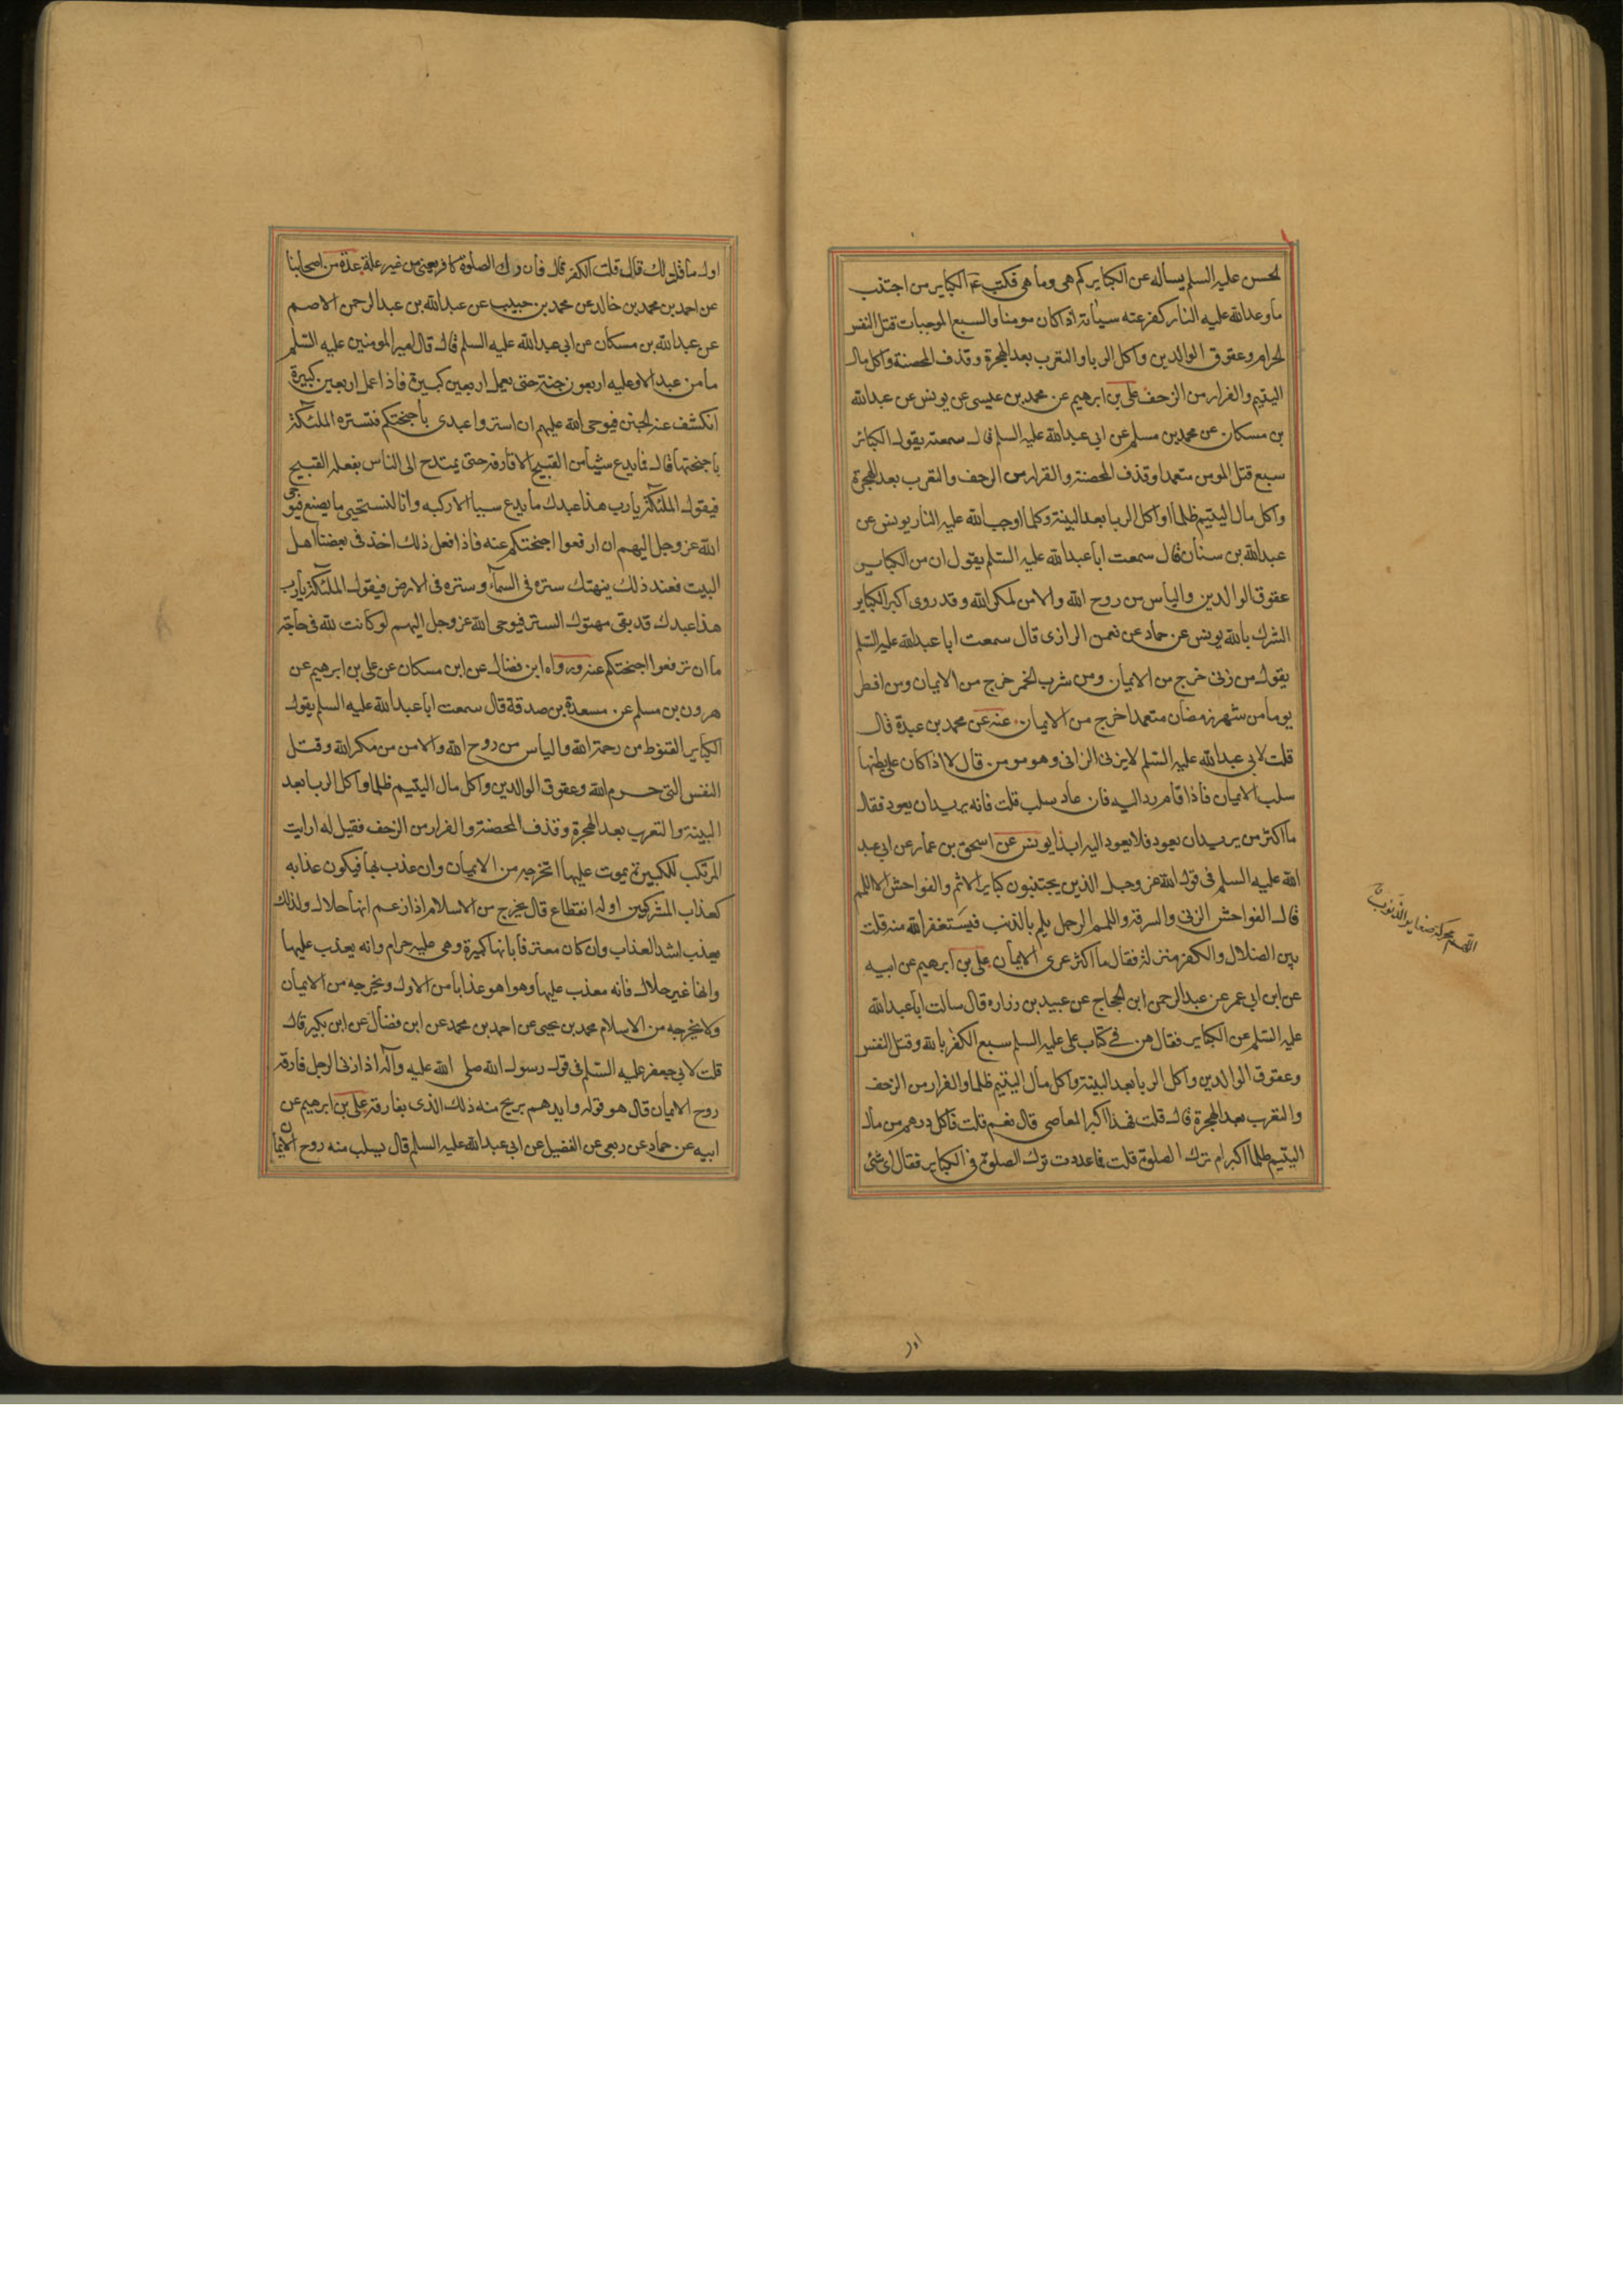 الحسن عليه السلم يسأله عن الكباير كم هى وما هى فكتب ع الكباير من اجتنب
ما وعد الله عليه النار كفر عنه سيأته اذا كان مومنا والسبع الموجبات قتل النفس
الحرام وعقوق الوالدين واكل الربا والتعرب بعد الهجرة وقذف المحصنة واكل مال
اليتيم والفرار من الزحف على بن ابرهيم عن محمد بن عيسى عن يونس عن عبد الله
بن مسكان عن محمد بن مسلم عن ابى عبد الله عليه السلم قال سمعته يقول الكبائر
سبع قتل المومن متعمدا وقذف المحصنة والفرار من الزحف والتعرب بعد الهجرة
واكل مال اليتيم ظلما واكل الربا بعد البينة وكلما اوجب الله عليه النار يونس عن
عبد الله بن سنان قال سمعت ابا عبد الله عليه السلم يقول ان من الكباير
عقوق الوالدين والياس من روح الله والامن لمكر الله وقد روى اكبر الكباير
الشرك بالله يونس عن حماد عن نعمن الرازى قال سمعت ابا عبد الله عليه السلم
يقول من زنى خرج من الايمان ومن شرب الخمر خرج من الايمان ومن افطر
يوما من شهر رمضان متعمدا خرج من الايمان عنه عن محمد بن عبدة قال
قلت لابى عبد الله عليه السلم لا يزنى الزانى وهو مومن قال لا اذا كان على بطنها
سلب الايمان فاذا قام رد اليه فان عاد سلب قلت فانه يريد ان يعود فقال
ما اكثر من يريد ان يعود فلا يعود اليه ابدا يونس عن اسحق بن عمار عن ابى عبد
الله عليه السلم فى قول الله عز وجل الذين يجتنبون كباير الاثم والفواحش الا اللمم
قال الفواحش الزنى والسرقة واللمم الرجل يلم بالذنب فيستغفر الله منه قلت
بين الضلال والكفر منزلة فقال ما اكثر عرى الايمان على بن ابرهيم عن ابيه
عن ابن ابى عمر عن عبد الرحمن ابن الحجاج عن عبيد بن زراره قال سالت ابا عبد الله
عليه السلم عن الكباير فقال هن فى كتاب على عليه السلم سبع الكفر بالله وقتل النفس
وعقوق الوالدين واكل الربا بعد البينة واكل مال اليتيم ظلما والفرار من الزحف
والتعرب بعد الهجرة قال قلت فهذا اكبر المعاصى قال نعم قلت فاكل درهم من مال
اليتيم ظلما اكبر ام ترك الصلوة قلت فما عددت ترك الصلوة فى الكباير فقال اى شئ
اللمم محركة صغاير الذنوب ق
اول
اول ما قلت لك قال قلت الكفر قال فان ترك الصلوة كافر يعنى من غير علة عدة من اصحابنا
عن احمد بن محمد بن خالد عن محمد بن حبيب عن عبد الله بن عبد الرحمن الاصم
عن عبد الله بن مسكان عن ابى عبد الله عليه السلم قال قال امير المومنين عليه السلم
ما من عبد الا وعليه اربعون جنة حتى يعمل اربعين كبيرة فاذا عمل اربعين كبيرة
انكشف عنه الجنن فيوحى الله عليهم ان استروا عبدى باجنحتكم فتستره الملئكة
باجنحتها قال فما يدع شيئا من القبيح الا قارفه حتى يمتدح الى الناس بفعله القبيح
فيقول الملئكة يا رب هذا عبدك ما يدع سبيا الا ركبه وانا لنستحيى ما يصنع فيوحى
الله عز وجل اليهم ان ارفعوا اجنحتكم عنه فاذا فعل ذلك اخذ فى بغضنا اهل
البيت فعند ذلك ينهتك ستره فى السمآء وستره فى الارض فيقول الملئكة يا رب
هذا عبدك قد بقى مهتوك الستر فيوحى الله عز وجل اليهم لو كانت لله فى حاجة
ما ان ترفعوا اجنحتكم عنه ورواه ابن فضال عن ابن مسكان عن على بن ابرهيم عن
هرون بن مسلم عن مسعدة بن صدقة قال سمعت ابا عبد الله عليه السلم يقول
الكباير القنوط من رحمة الله والياس من روح الله والامن من مكر الله وقتل
النفس التى حرم الله وعقوق الوالدين واكل مال اليتيم ظلما واكل الربا بعد
البينة والتعرب بعد الهجرة وقذف المحصنة والفرار من الزحف فقيل له ارايت
المرتكب للكبيرة يموت عليها اتخرجه من الايمان وان عذب بها فيكون عذابه
كعذاب المشركين او له انقطاع قال يخرج من الاسلام اذا زعم انها حلال ولذلك
يعذب اشد العذاب وان كان معترفا بانها كبيرة وهى عليه حرام وانه يعذب عليها
وانها غير حلال فانه معذب عليها وهو اهون عذابا من الاول ويخرجه من الايمان
ولا يخرجه من الاسلام محمد بن يحيى عن احمد بن محمد عن ابن فضال عن ابن بكير قال
قلت لابى جعفر عليه السلم فى قول رسول الله صلى الله عليه وآله اذا زنى الرجل فارقه
روح الايمان قال هو قوله وايدهم بروح منه ذلك الذى يفارقه على بن ابرهيم عن
ابيه عن حماد عن ربعى عن الفضيل عن ابى عبد الله عليه السلم قال يسلب منه روح الايمان